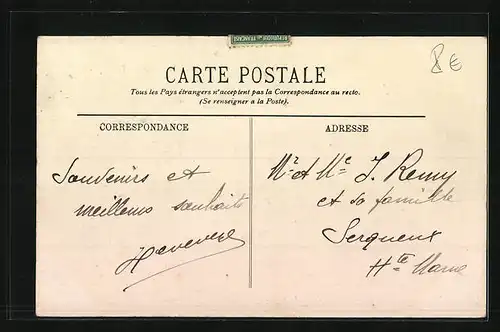 REPUBLIQUE FRANÇAISE
8€
CARTE POSTALE
Tous les Pays étrangers n'acceptent pas la Correspondance au recto.
(Se renseigner a la Poste).
CORRESPONDANCE
Souvenirs et
meilleurs souhaits
ADRESSE
Mr et Me J. Remy
et sa famille
Serqueux
Hte Marne